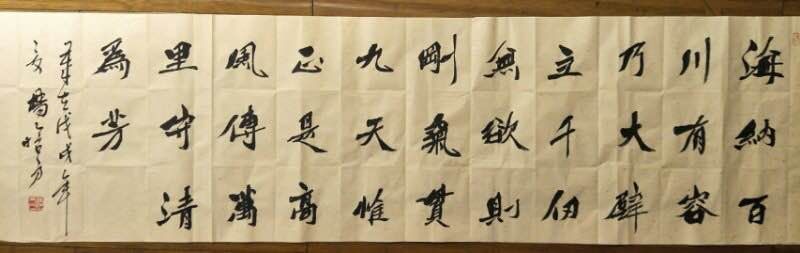 海納百
川有容
乃大壁
立千仞
無欲則
剛氣貫
九天惟
正是高
風傳萬
里守清
為芳
歲在戊戌年